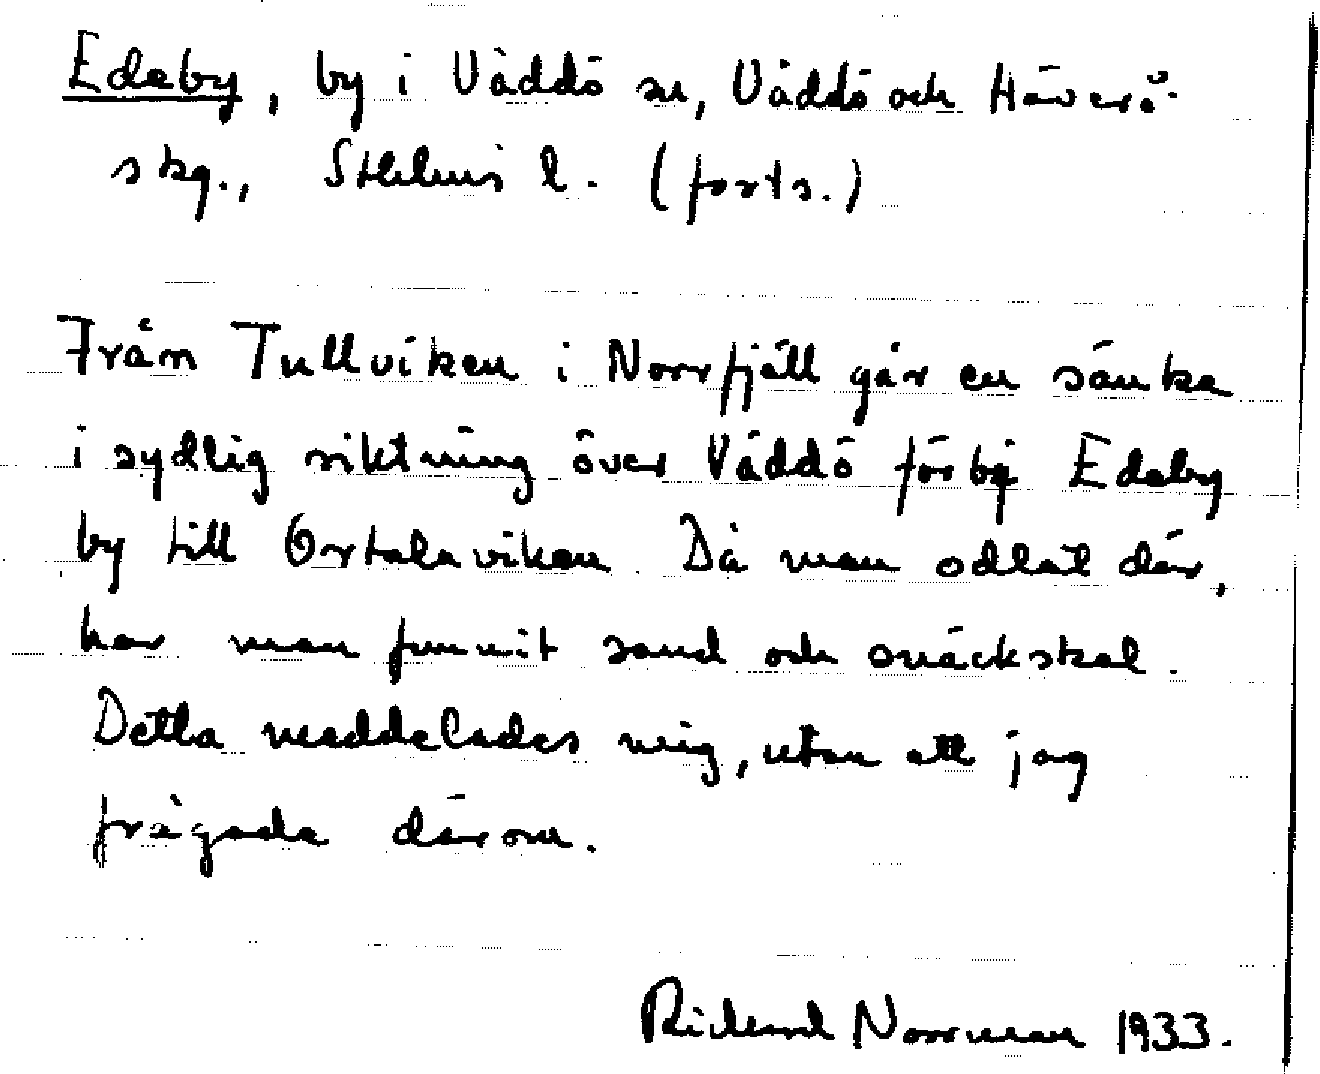 Edeby, by i Väddö sn, Väddö och Häverö
skg., Sthlms l. (forts.)
Från Tullviken i Norrfjäll går en sänka
i sydlig riktning över Väddö förbi Edeby
by till Ortalaviken. Då man odlat där,
har man funnit sand och snäckskal.
Detta meddelades mig, utan att jag
frågade därom.
Rickard Norrman 1933.